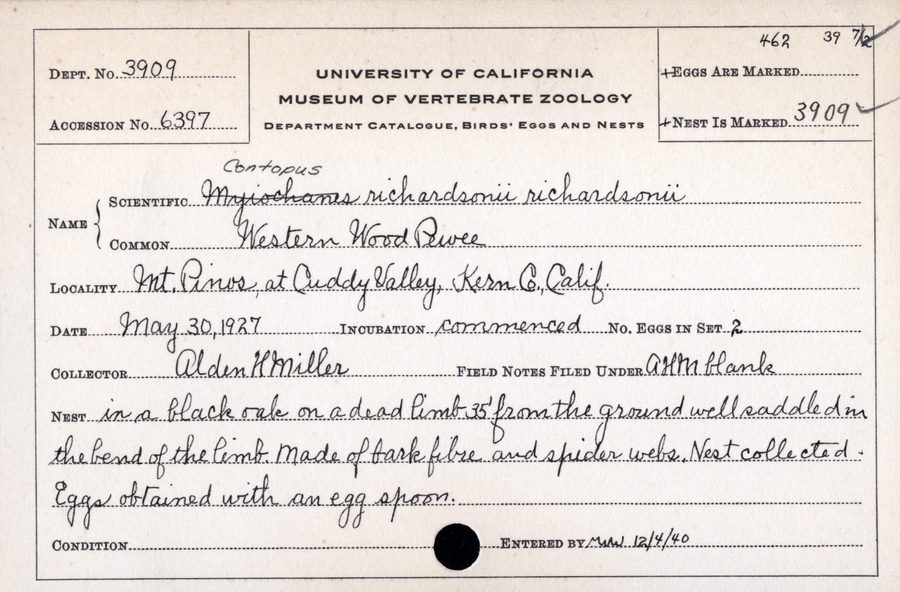 462 39 7/2
DEPT. NO. 3909
UNIVERSITY OF CALIFORNIA
+EGGS ARE MARKED
MUSEUM OF VERTEBRATE ZOOLOGY
ACCESSION NO. 6397
DEPARTMENT CATALOGUE, BIRDS' EGGS AND NESTS
+NEST IS MARKED 3909
Contopus
NAME { SCIENTIFIC Myiochanes richardsonii richardsonii
COMMON Western Wood Pewee
LOCALITY Mt. Pinos, at Cuddy Valley, Kern Co., Calif.
DATE May 30, 1927 INCUBATION commenced NO. EGGS IN SET 2
COLLECTOR Alden H Miller FIELD NOTES FILED UNDER AHM blank
NEST in a black oak on a dead limb 35' from the ground well saddled in
the bend of the limb. Made of bark fibre and spider webs. Nest collected.
Eggs obtained with an egg spoon.
CONDITION ENTERED BY 12/4/40